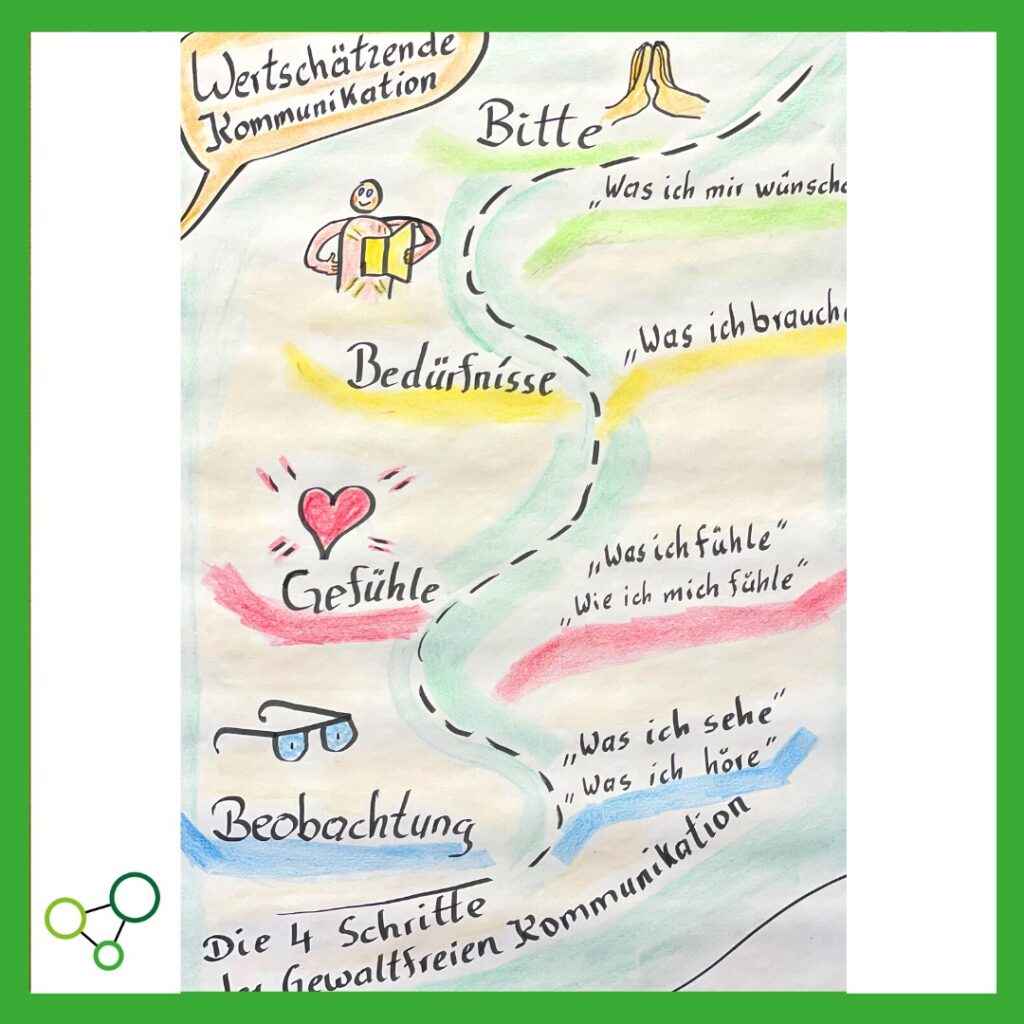 Wertschätzende
Kommunikation
Bitte
„Was ich mir wünsche
Bedürfnisse
„Was ich brauche
Gefühle
„Was ich fühle“
„Wie ich mich fühle“
Beobachtung
„Was ich sehe“
„Was ich höre“
Die 4 Schritte
der Gewaltfreien Kommunikation